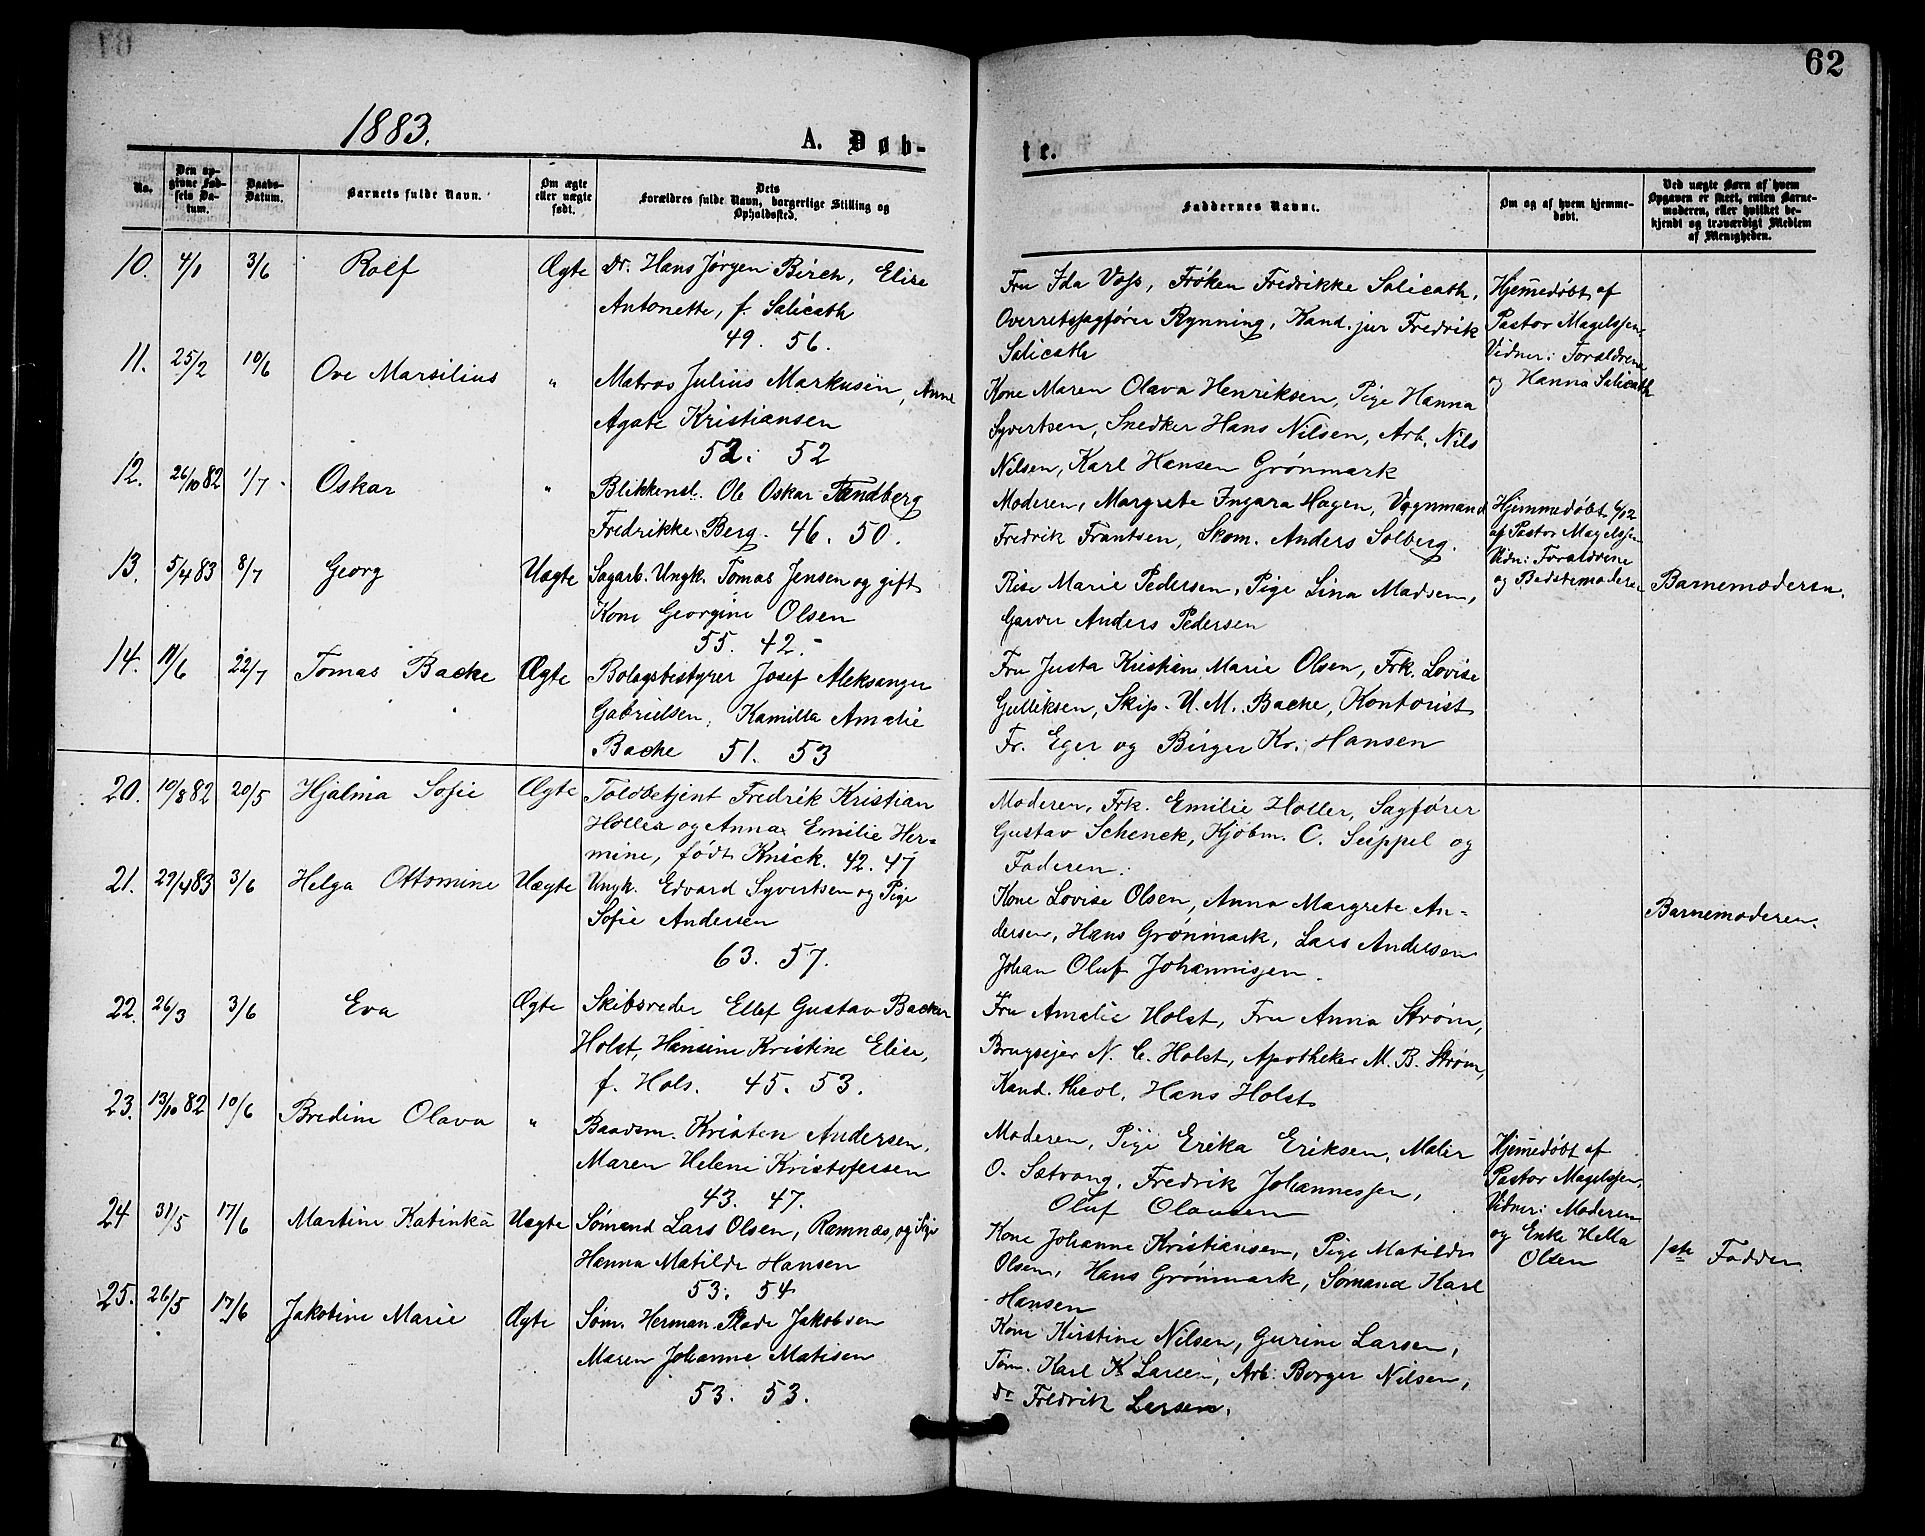 62
1883.
A. Døb-
te.
No.
Den op-
givne Fød-
sels Da-
tum.
Daabs-
Datum.
Barnets fulde Navn.
Om ægte
eller uægte
født.
Dets
Forældres fulde Navn, borgerlige Stilling og
Opholdssted.
Faddernes Navne.
Om og af hvem hjemme-
døbt.
Ved uægte Børn af hvem
Opgaven er skeet, enten Barne-
moderen, eller hvilket be-
kjendt og troværdigt Medlem
af Menigheden.
10. 4/1 3/6 Rolf Ægte Dr. Hans Jørgen Birch, Elise
Antonette, f. Salicath
49. 56.
Fru Ida Voss, Frøken Fredrikke Salicath,
Overretssagfører Rynning, Kand. jur Fredrik
Salicath
Hjemedøbt af
Pastor Magelssen.
Vidner: Forældrene
og Hanna Salicath
11. 25/2 10/6 Ove Marsilius " Matros Julius Markusen, Anne
Agate Kristiansen
52. 52
Kone Maren Olava Henriksen, Pige Hanna
Syvertsen, Snedker Hans Nilsen, Arb. Nils
Nilsen, Karl Hansen Grønmark
12. 26/10 82 1/7 Oskar " Blikkensl. Ole Oskar Tandberg
Fredrikke Berg. 46. 50.
Moderen, Margrete Ingara Hagen, Vognmand
Fredrik Frantsen, Skom. Anders Solberg.
Hjemmedøbt 6/12
af Pastor Magelssen
Vidn: Forældrene
og Bedstemoderen
13. 5/4 83 8/7 Georg Uægte Sagarb. Ungk. Tomas Jensen og gift
Kone Georgine Olsen
55. 42.
Rise Marie Pedersen, Pige Lina Madsen,
Garver Anders Pedersen
Barnemoderen.
14. 11/6 22/7 Tomas Backe Ægte Bolagsbestyrer Josef Aleksanger
Gabrielsen, Kamilla Amalie
Backe 51. 53
Fru Justa Kristine Marie Olsen, Frk. Lovise
Gulliksen, Skip. U. M. Backe, Kontorist
Fr. Eger og Birger Kr. Hansen
20. 10/8 82 20/5 Hjalma Sofie Ægte Toldbetjent Fredrik Kristian
Holler og Anna Emilie Her-
mine, født Knick. 42. 47
Moderen, Frk. Emilie Holler, Sagfører
Gustav Schenck, Kjøbm. C. Seippel og
Faderen.
21. 29/4 83 3/6 Helga Ottomine Uægte Ungk. Edvard Syvertsen og Pige
Sofie Andersen
63. 57.
Kone Lovise Olsen, Anna Margrete An-
dersen, Hans Grønmark, Lars Andersen
Johan Oluf Johannisen.
Barnemoderen.
22. 26/3 3/6 Eva Ægte Skibsreder Ellef Gustav Backer
Holst, Hansine Kristine Elise,
f. Hols. 45. 53.
Fru Amalie Holst, Fru Anna Strøm,
Brugsejer N. C. Holst, Apotheker M. B. Strøm,
Kand. theol. Hans Holst
23. 13/10 82 10/6 Bredine Olava " Baadsm. Kristen Andersen,
Maren Helene Kristofersen
43. 47.
Moderen, Pige Erika Eriksen, Maler
O. Sætvang, Fredrik Johannessen,
Oluf Olausen
Hjemedøbt af
Pastor Magelssen,
Vidner: Moderen
og Enke Hella
Olsen
24 31/5 17/6 Martine Katinka Uægte Sømand Lars Olsen, Ramnæs, og Pige
Hanna Matilde Hansen
53. 54
Kone Johanne Kristiansen, Pige Matilde
Olsen, Hans Grønmark, Sømand Karl
Hansen
1ste Fadder
25. 26/5 17/6 Jakobine Marie Ægte Søm. Herman Plade Jakobsen
Maren Johanne Matisen
53. 53.
Kone Kirstine Nilsen, Gurine Larsen,
Tøm. Karl K Larsen, Arb: Borger Nilsen,
do Fredrik Larsen.